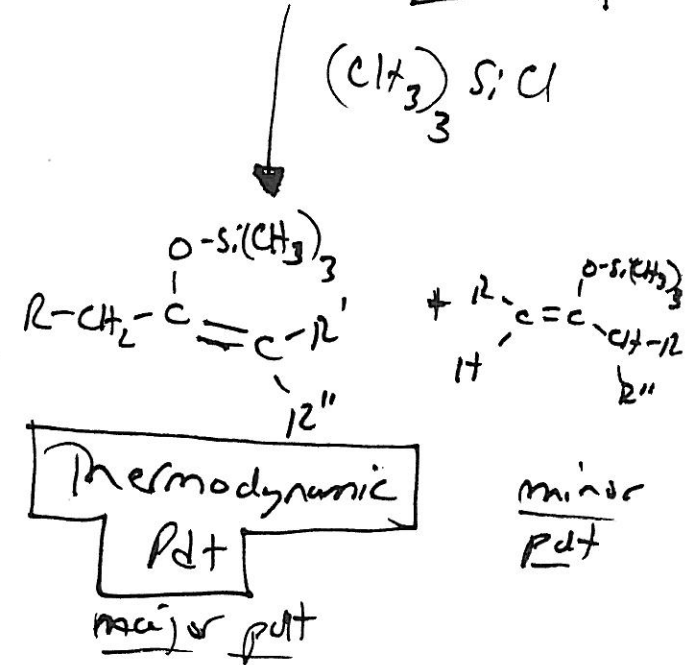 (CH3)3 SiCl
O-Si(CH3)3
R-CH2-C=C-R'
R''
+ R C=C O-Si(CH3)3
H CH-R
R''
Thermodynamic
Pdt
major pdt
minor
pdt